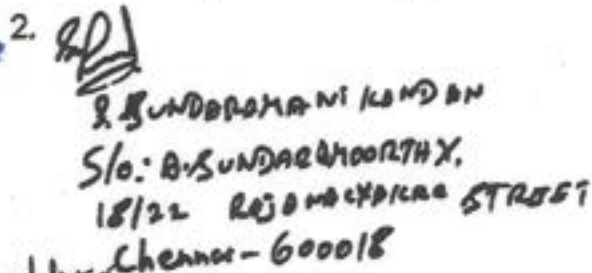 2.
S. SUNDARAMANIKANDAN
S/o: A. SUNDARAMOORTHY,
18/22 STREET
Chennai - 600018